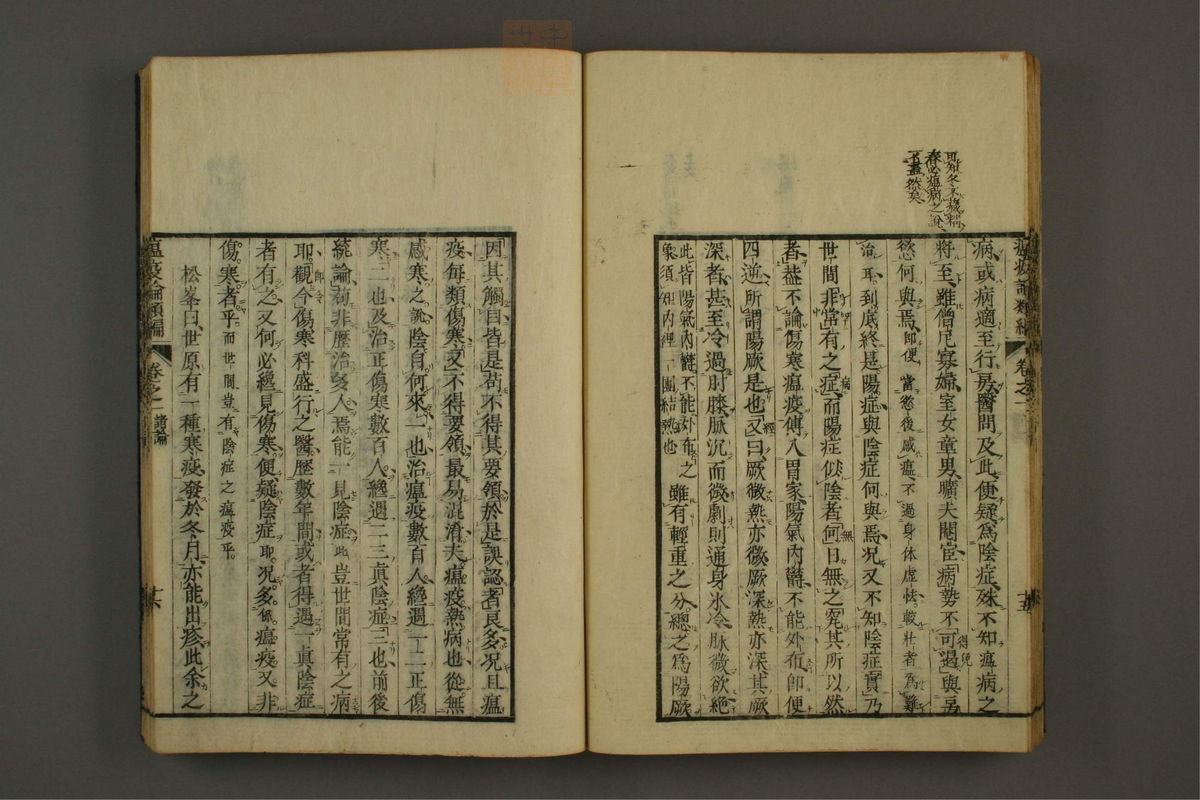 可知冬不藏精
春必瘟病之說
不盡然矣
瘟疫論類編
卷之一
十五
病或病適至行房醫問及此便疑爲陰症殊不知瘟病之
將至雖僧尼寡婦室女童男曠夫閹宦病勢不可遏與房
慾何與焉即使當慾後感瘟不過身体虛怯較壯者爲難
治耳到底終是陽症與陰症何與焉况又不知陰症實乃
世間非常有之症而陽症似陰者何日無之究其所以然
者蓋不論傷寒瘟疫傳入胃家陽氣內鬱不能外布即便
四逆所謂陽厥是也又曰厥微熱亦微厥深熱亦深其厥
深者甚至冷過肘膝脉沉而微劇則通身氷冷脉微欲絕
此皆陽氣內鬱不能外布之
象須知內裡一團結熱也
雖有輕重之分總之爲陽厥
因其觸目皆是苟不得其要領於是誤認者良多况且瘟
疫每類傷寒又不得要領最易混淆夫瘟疫熱病也從無
感寒之說陰自何來一也治瘟疫數百人纔遇一二正傷
寒二也及治正傷寒數百人纔遇二三眞陰症三也前後
統論苟非歷治多人焉能一見陰症此豈世間常有之病
耶觀今傷寒科盛行之醫歷數年間或者得遇一眞陰症
者有之又何必纔見傷寒便疑陰症耶况多係瘟疫又非
傷寒者乎而世間豈有陰症之瘟疫乎
松峯曰世原有一種寒疫發於冬月亦能出疹此余之
瘟疫論類編
卷之一
諸論
十六